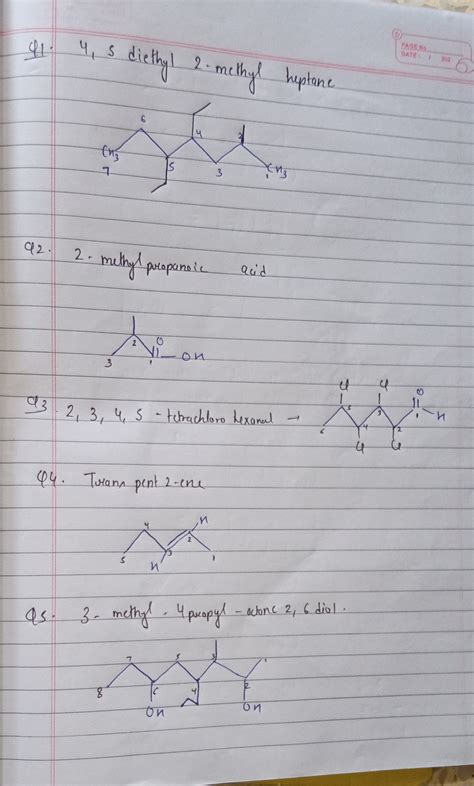 PAGE No.
DATE: / /202
Q1. 4, 5 diethyl 2-methyl heptane
6
4
2
CH3
7
5
3
1
CH3
Q2. 2-methylpropanoic acid
2
O
OH
3
1
Q3. 2, 3, 4, 5 - tetrachloro hexanal →
Cl Cl O
5 3 1 H
6 4 2
Cl Cl
Q4. Trans pent 2-ene
H
4
2
3
5
H
1
Q5. 3-methyl-4propyl-octane 2, 6 diol.
7 5 3 1
8 6 4 2
OH OH